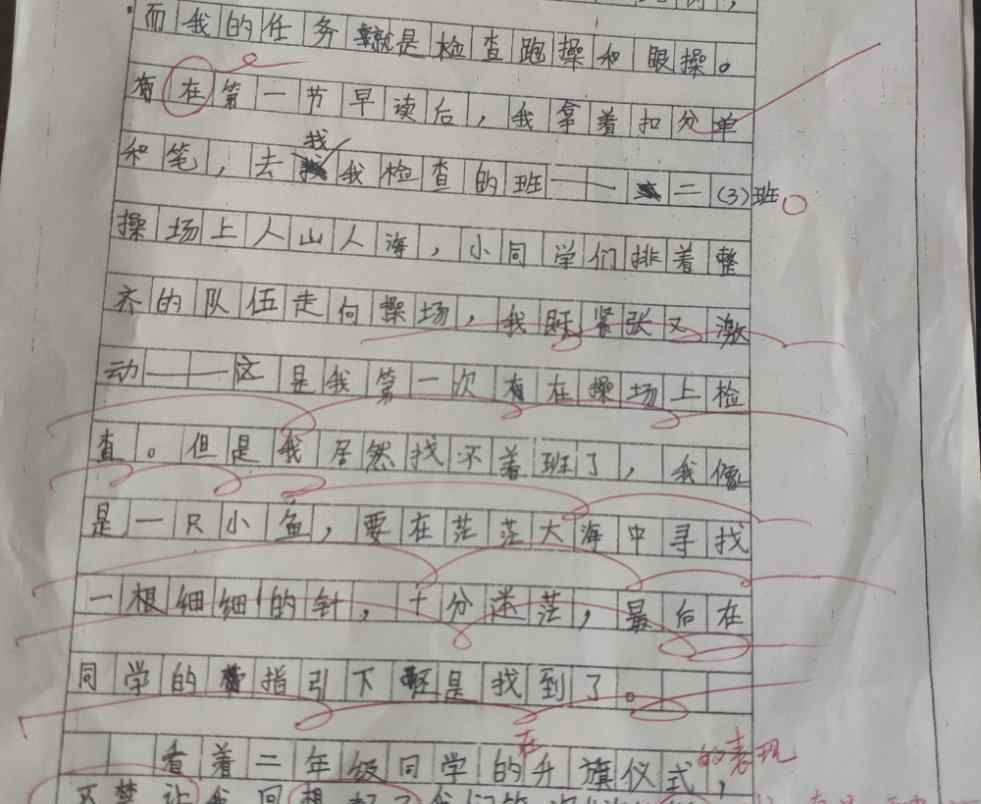 而我的任务就是检查跑操和眼操。
在第一节早读后，我拿着扣分单
和笔，去找我检查的班——二(3)班
操场上人山人海，小同学们排着整
齐的队伍走向操场，我既紧张又激
动——这是我第一次在操场上检
查。但是我居然找不着班了，我像
是一只小鱼，要在茫茫大海中寻找
一根细细的针，十分迷茫，最后在
同学的指引下还是找到了。
看着二年级同学的在升旗仪式的表现，
不禁让我回想起了我们